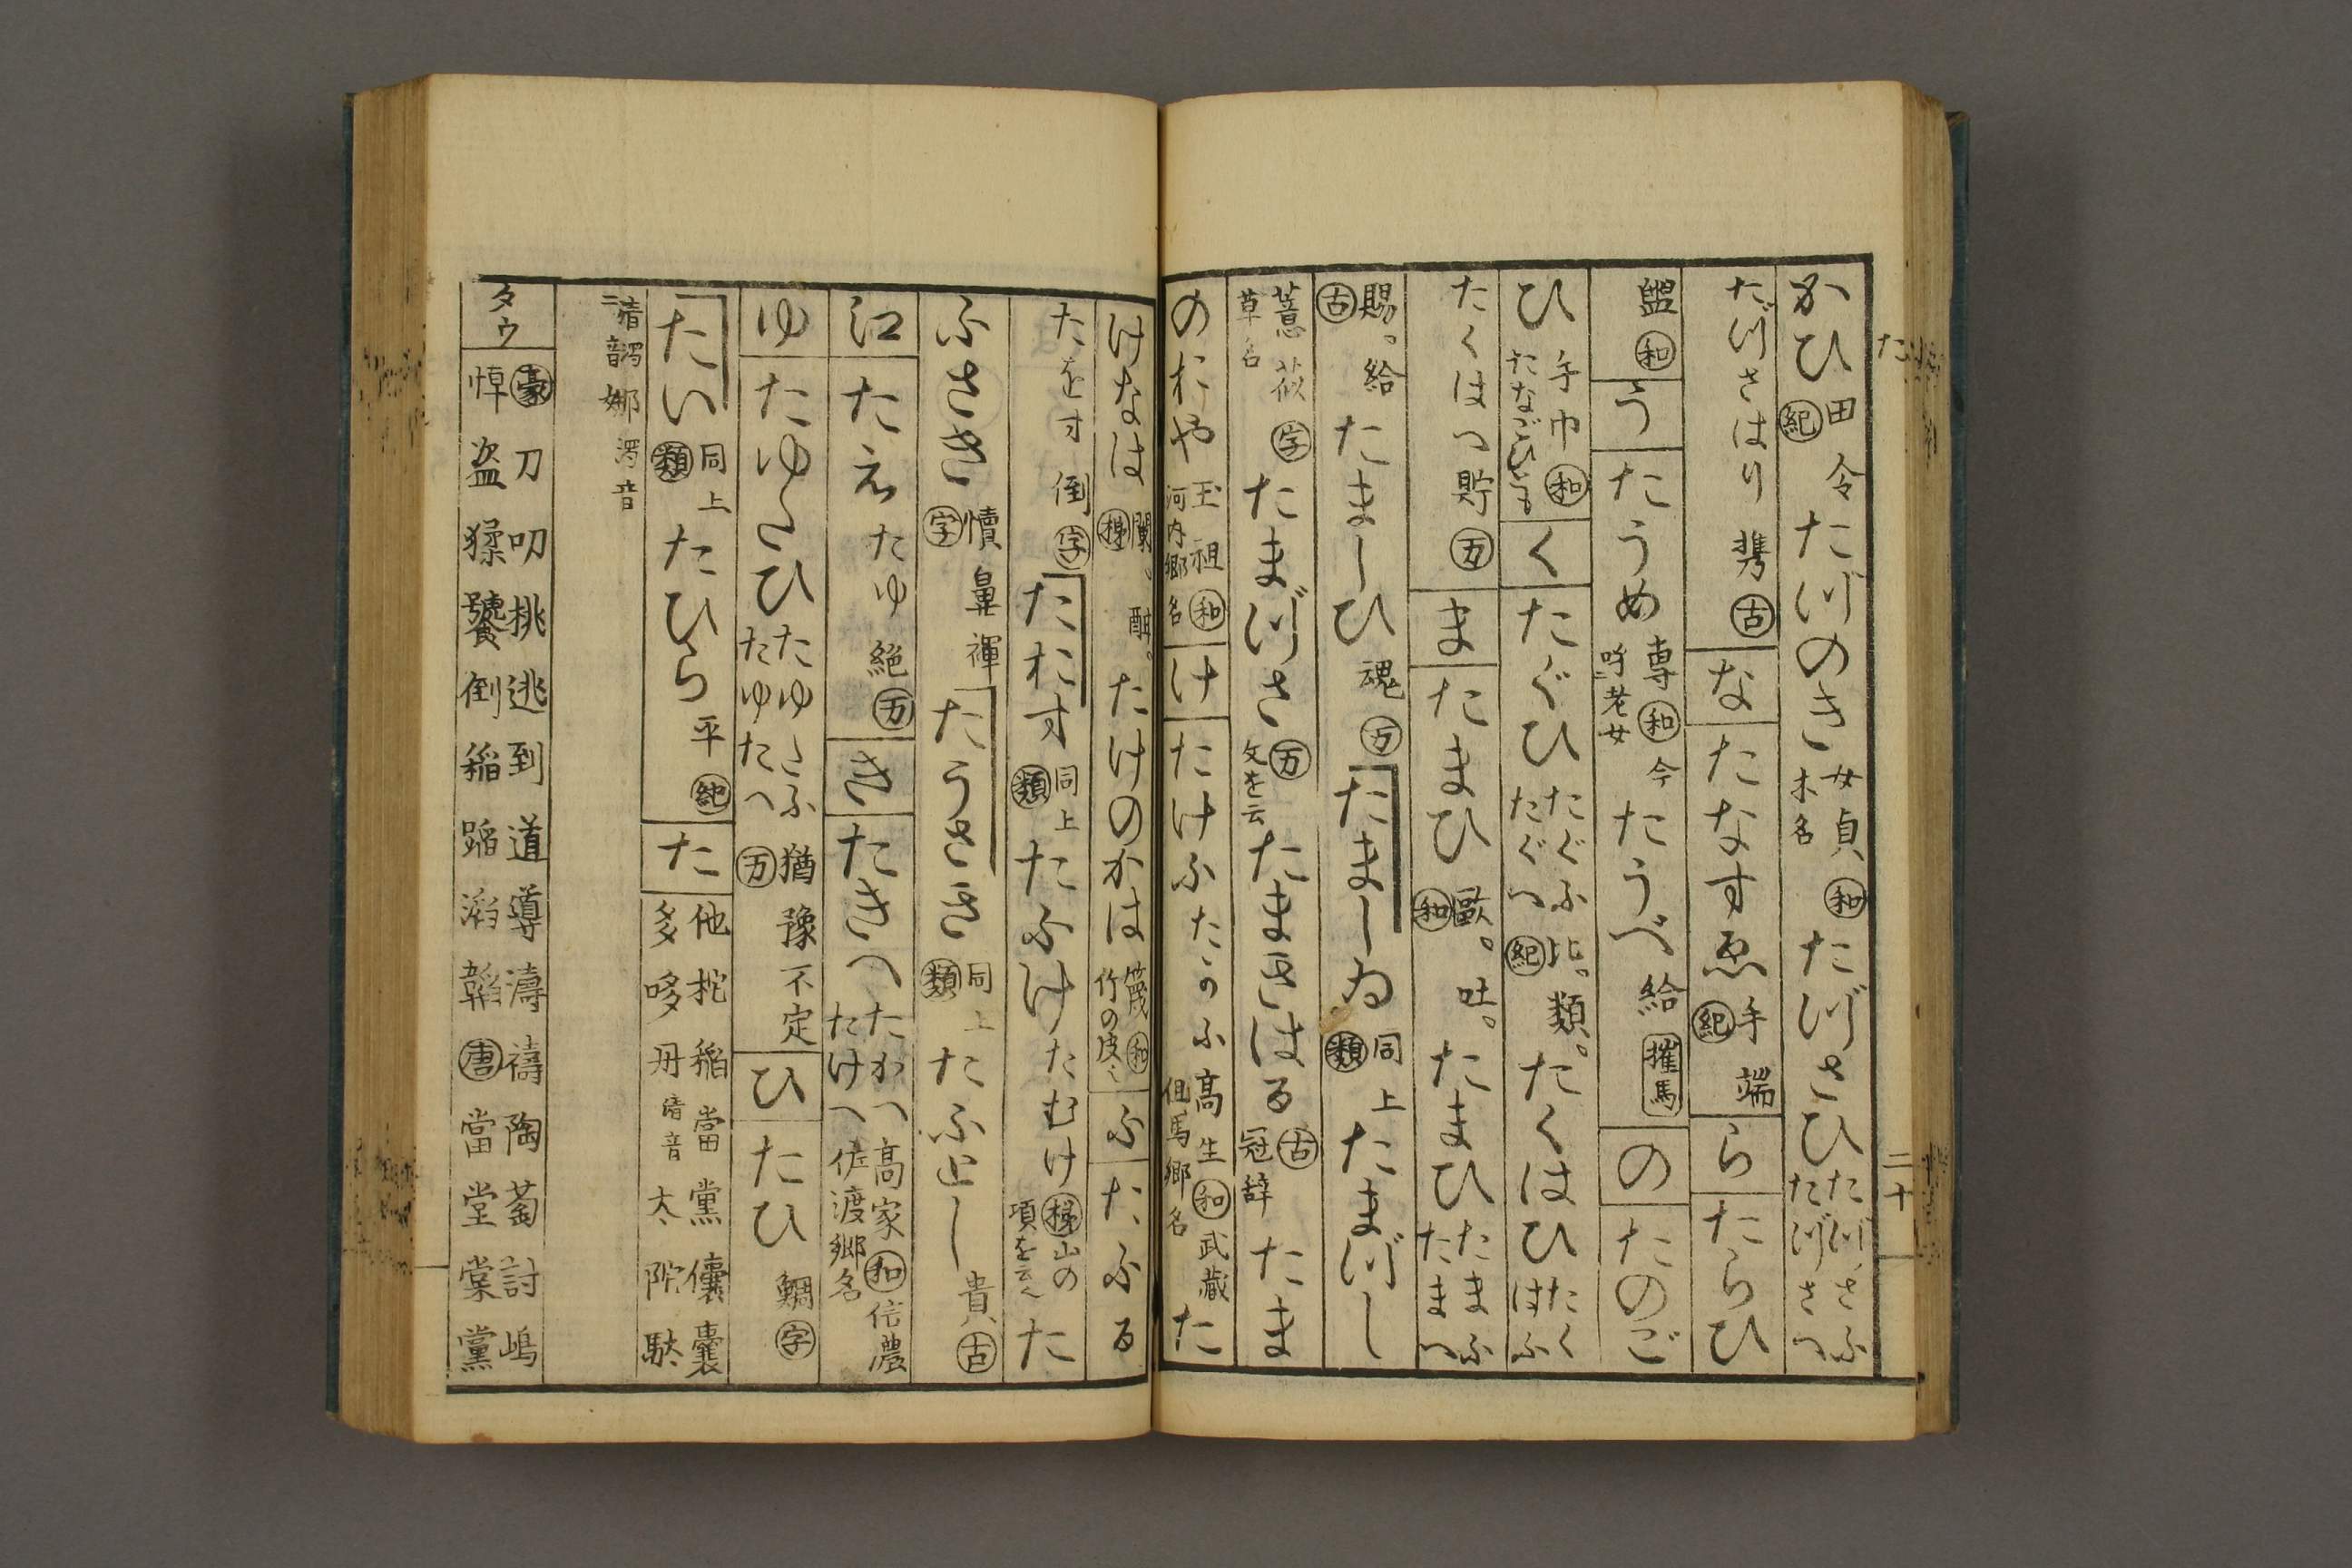 た
二十
かひ 田令 紀 たづのき 女貞 和 木名 たづさひ たづさふ たづさへ
たづさはり 携 古 な たなすゑ 手端 紀 ら たらひ
盥 和 う たうめ 専 和 今呼老女 たうべ 給 催馬 の たのご
ひ 手巾 和 たなごひとも く たぐひ たぐふ たぐへ 比。類。 紀 たくはひ たくはふ
たくはへ 貯 万 ま たまひ 歐。吐。 和 たまひ たまふ たまへ
賜。給 古 たましひ 魂 万 たましゐ 同上 類 たまづし
薏苡 字 草名 たまづさ 万 文を云 たまきはる 古 冠辞 たま
のおや 玉祖 和 河内郷名 け たけふ たかふ 高生 和 武蔵 但馬郷名 た
けなは 闌。酣。 たけのかは 篾 和 竹の皮 ふ たふる
たをす 倒 字 たおす 同上 類 たふけ たむけ 山の項を云 た
ふさき 犢鼻褌 字 たうさき 同上 類 たふとし 貴 古
江 たえ たゆ 絶 万 き たきへ たかへ たけへ 高家 和 信濃 佐渡郷名
ゆ たゆたひ たゆたふ たゆたへ 猶豫不定 万 ひ たひ 鯛 字
たい 同上 類 たひら 平 紀 た 他 柁 稲 當 黨 儻 嚢 多 哆 丹 清音 太 陀 駄
清濁二音 娜 濁音
タウ 豪 刀 叨 挑 逃 到 道 導 濤 禱 陶 萄 討 嶋 悼 盗 猱 饕 倒 稲 蹈 滔 韜 唐 當 堂 棠 黨